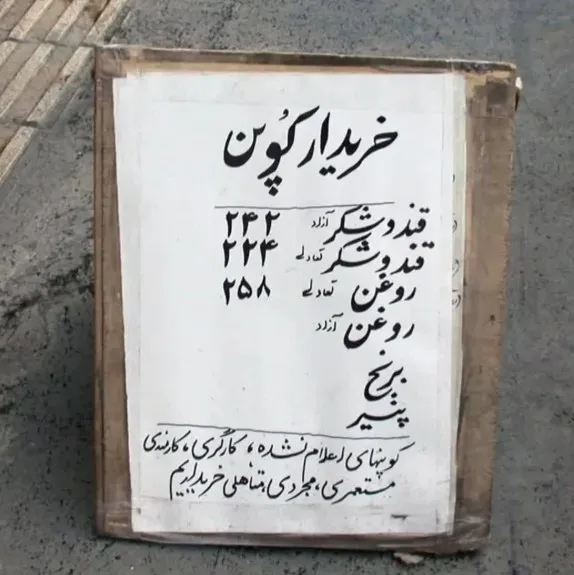 خریدار کُوپن
قند و شکر آزاد ۲۴۲
قند و شکر تعادلی ۲۲۴
روغن تعادلی ۲۵۸
روغن آزاد
برنج
پنیر
کوپنهای اعلام نشده، کارگری، کارمندی
مستمری، مجردی، متاهلی خریداریم